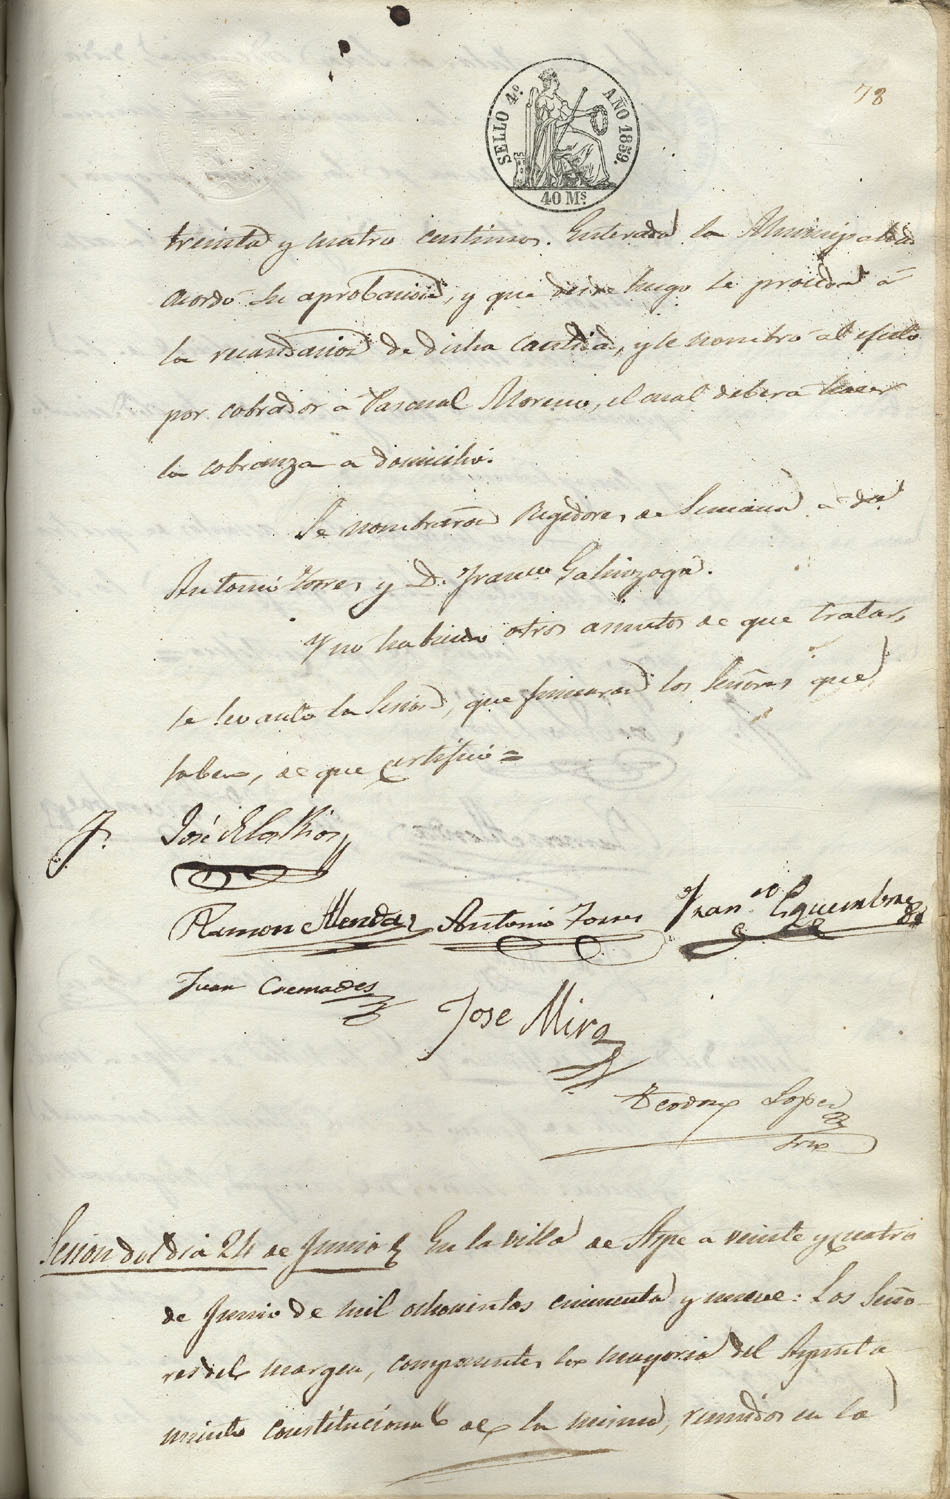 SELLO 4.º AÑO 1859.
40 Ms.
78
treinta y cuatro centimos. Enterada la Municipalidad
acordó su aprobacion, y que desde luego se proceda á
la recaudacion de dicha cantidad, y se nombró al efecto
por cobrador á Pascual Moreno, el cual deberá hacer
la cobranza a domicilio.
Se nombraron Regidores de Semana á dn.
Antonio Torres y D. Franco. Galinzoga.
Y no habiendo otros asuntos de que tratar,
se levantó la Sesion, que firmaron los Señores que
saben, de que certifico =
José de los Rios
Ramon Alenda Antonio Torres Franco. Esquembre
Juan Cremades
Jose Mira
Lopez
Srio
Sesion del dia 24 de Junio En la villa de Aspe a veinte y cuatro
de Junio de mil ochocientos cincuenta y nueve: Los Seño-
res del margen, componentes la mayoria del Ayunta
miento constitucional de la misma, reunidos en la